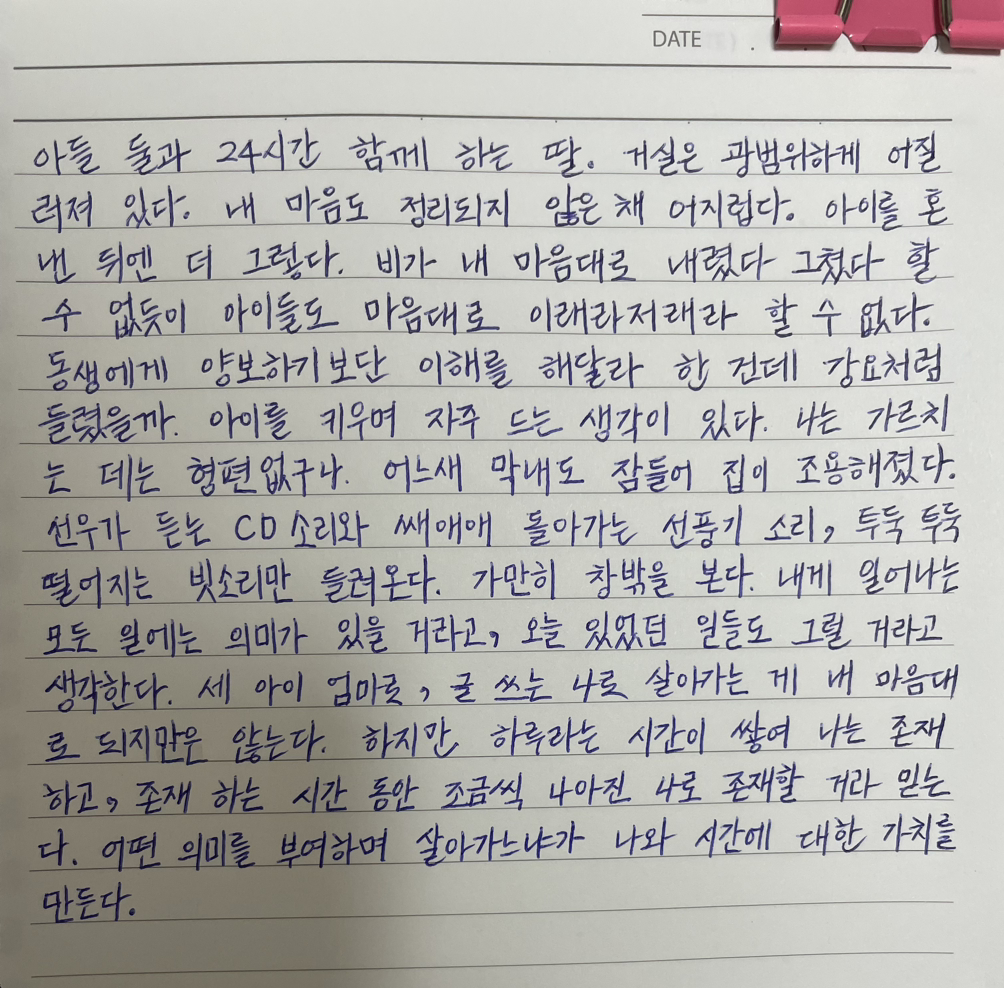 DATE . .
아들 둘과 24시간 함께 하는 딸. 거실은 광범위하게 어질
러져 있다. 내 마음도 정리되지 않은 채 어지럽다. 아이를 혼
낸 뒤엔 더 그렇다. 비가 내 마음대로 내렸다 그쳤다 할
수 없듯이 아이들도 마음대로 이래라저래라 할 수 없다.
동생에게 양보하기보단 이해를 해달라 한 건데 강요처럼
들렸을까. 아이를 키우며 자주 드는 생각이 있다. 나는 가르치
는 데는 형편없구나. 어느새 막내도 잠들어 집이 조용해졌다.
선우가 듣는 CD 소리와 쌔애애 돌아가는 선풍기 소리, 투둑 투둑
떨어지는 빗소리만 들려온다. 가만히 창밖을 본다. 내게 일어나는
모든 일에는 의미가 있을 거라고, 오늘 있었던 일들도 그럴 거라고
생각한다. 세 아이 엄마로, 글 쓰는 나로 살아가는 게 내 마음대
로 되지만은 않는다. 하지만, 하루라는 시간이 쌓여 나는 존재
하고, 존재 하는 시간 동안 조금씩 나아진 나로 존재할 거라 믿는
다. 어떤 의미를 부여하며 살아가느냐가 나와 시간에 대한 가치를
만든다.